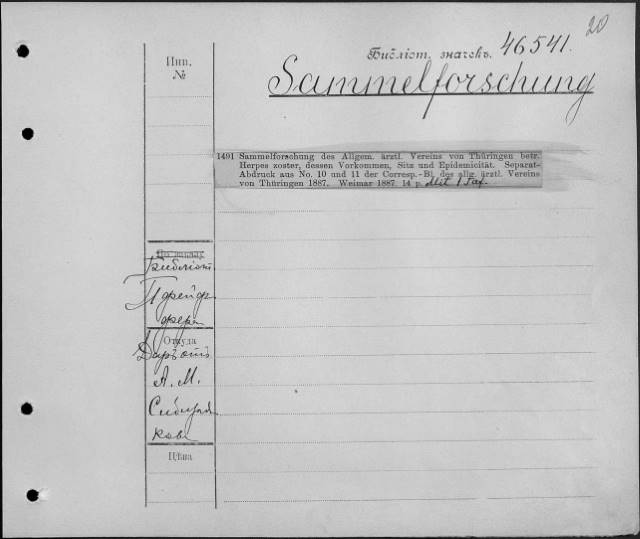 20
Библіот. значекъ. 46541.
Sammelforschung
Инв.
№
1491 Sammelforschung des Allgem. ärztl. Vereins von Thüringen betr.
Herpes zoster, dessen Vorkommen, Sitz und Epidemicität. Separat-
Abdruck aus No. 10 und 11 der Corresp.-Bl. des allg. ärztl. Vereins
von Thüringen 1887. Weimar 1887 14 p. Mit 1 Taf.
Библіот.
Пфейф
фера
Откуда
Даръ отъ
А. М.
Сибиря
кова
Цѣна